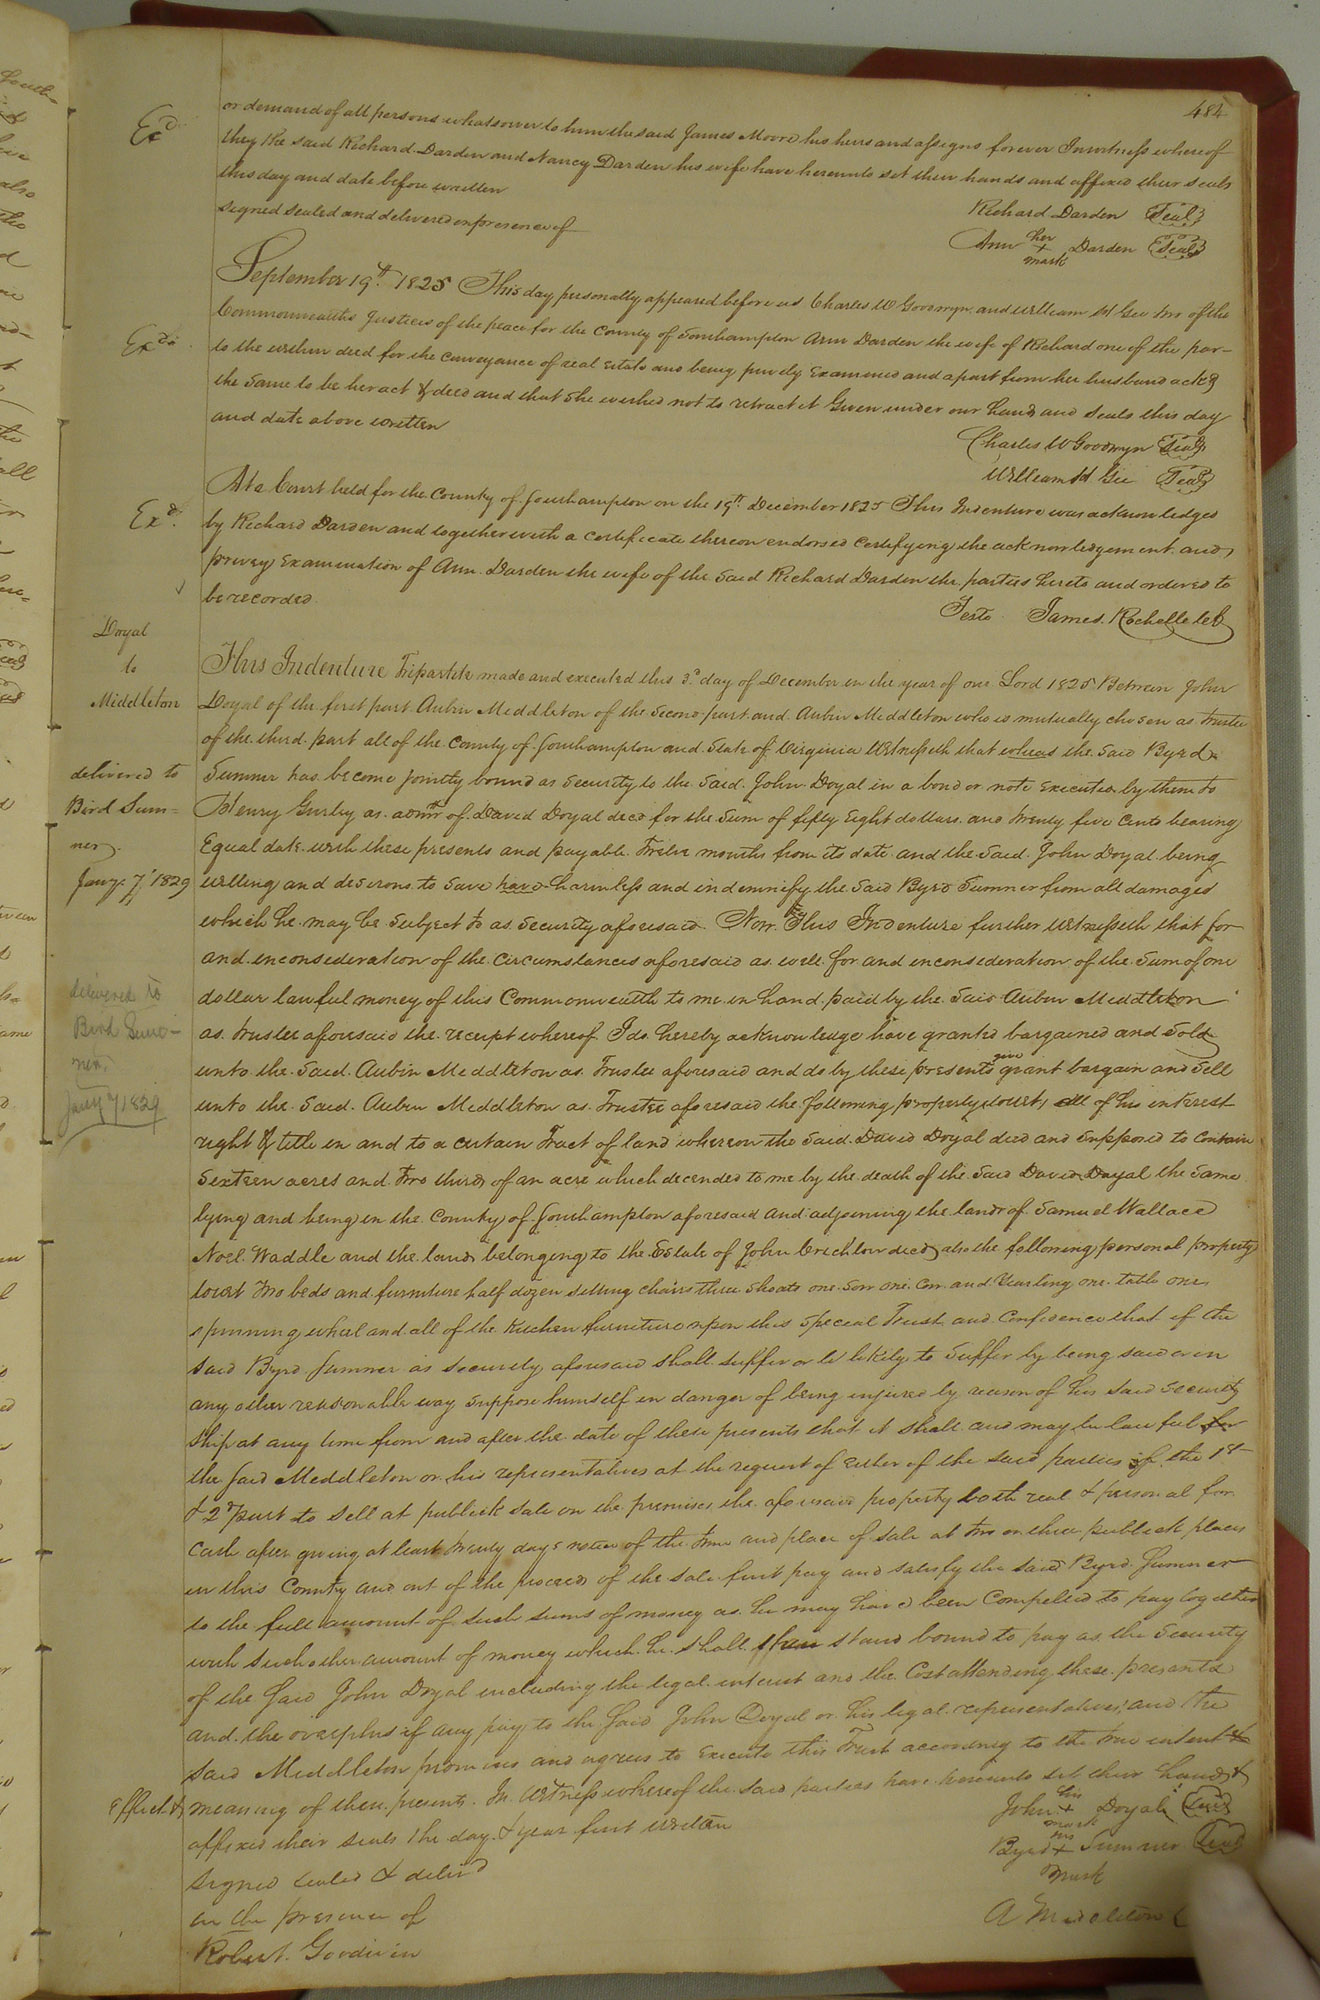 484
Exd
or demand of all persons whatsoever to him the said James Moore his heirs and assigns forever In witness whereof
they the said Richard Darden and Nancy Darden his wife have hereunto set their hands and affixed their seals
this day and date before written
signed sealed and delivered in presence of
Richard Darden Seal
Ann her + mark Darden Seal
September 19th 1825 This day personally appeared before us Charles W Goodwyn and William H Gee two of the
Commonwealths Justices of the peace for the County of Southampton Ann Darden the wife of Richard one of the par-
to the within deed for the conveyance of real Estate and being privily Examined and apart from her husband ackd
the Same to be her act & deed and that She wished not to retract it Given under our hand and Seals this day
and date above written
Charles W Goodwyn Seal
William H Gee Seal
Exd
At a Court held for the County of Southampton on the 19th December 1825 This Indenture was acknowledged
by Richard Darden and together with a Certificate thereon endorsed Certifying the acknowledgement and
privey Examination of Ann Darden the wife of the Said Richard Darden the parties hereto and ordered to
be recorded
Teste James Rochelle
Doyal
to
Middleton
delivered to
Bird Sum-
ner
Jany 7th 1829
This Indenture Tripartite made and executed this 3d day of December in the year of our Lord 1825 Between John
Doyal of the first part Aubin Middleton of the Second part and Aubin Middleton who is mutually chosen as trustee
of the third part all of the County of Southampton and State of Virginia Witnesseth that whereas the Said Byrd
Sumner has become jointly bound as Security to the Said John Doyal in a bond or note Executed by them to
Henry Gurley as admr of David Doyal decd for the Sum of fifty Eight dollars and twenty five Cents bearing
Equal date with these presents and payable Twelve months from its date and the Said John Doyal being
willing and desirous to Save harmless and indemnify the Said Byrd Sumner from all damages
which he may be Subject to as Security aforesaid Now This Indenture further Witnesseth that for
and inconsideration of the Circumstances aforesaid as well for and inconsideration of the Sum of one
dollar lawful money of this Commonwealth to me in hand paid by the Said Aubin Middleton
as trustee aforesaid the receipt whereof I do hereby acknowledge have granted bargained and Sold
unto the Said Aubin Middleton as Trustee aforesaid and do by these presents give grant bargain and Sell
unto the Said Aubin Middleton as Trustee aforesaid the following property towit, all of his interest
right & title in and to a certain Tract of land whereon the Said David Doyal died and Supposed to Contain
Sixteen acres and two thirds of an acre which decended to me by the death of the Said David Doyal the Same
lying and being in the County of Southampton aforesaid and adjoining the lands of Samuel Wallace
Noel Waddle and the land belonging to the Estate of John Crichlow decd also the following personal property
towit Two beds and furniture half dozen Setting chairs three Shoats one Sow one Cow and Yearling one table one
spinning wheel and all of the Kitchen furniture upon this Special Trust and Confidence that if the
said Byrd Sumner as Security aforesaid Shall Suffer or be likely to Suffer by being Sued or in
any other reasonable way Suppose himself in danger of being injured by reason of his said Security
ship at any time from and after the date of these presents that it Shall and may be lawful for
the Said Middleton or his representatives at the request of either of the Said parties of the 1st
& 2d part to sell at publick Sale on the premises the aforesaid property both real & personal for
Cash after giving at least twenty days notice of the time and place of Sale at two or three publick places
in this County and out of the proceeds of the Sale first pay and satisfy the said Byrd Sumner
to the full amount of such Sums of money as he may have been Compelled to pay together
with such other amount of money which he shall then stand bound to pay as the Security
of the Said John Doyal including the legal interest and the Cost attending these presents
and the overplus if any pay to the Said John Doyal or his legal representatives, and the
said Middleton promises and agrees to Execute this Trust according to the true intent &
Effect &
meaning of these presents. In Witness whereof the said parties have hereunto set their hands &
affixed their seals the day & year first written
signed sealed & delivd
in the presence of
Robert Goodwin
John his + mark Doyal Seal
Byrd his + mark Sumner Seal
A Middleton
delivered to
Bird Sum-
ner
Jany 7 1829